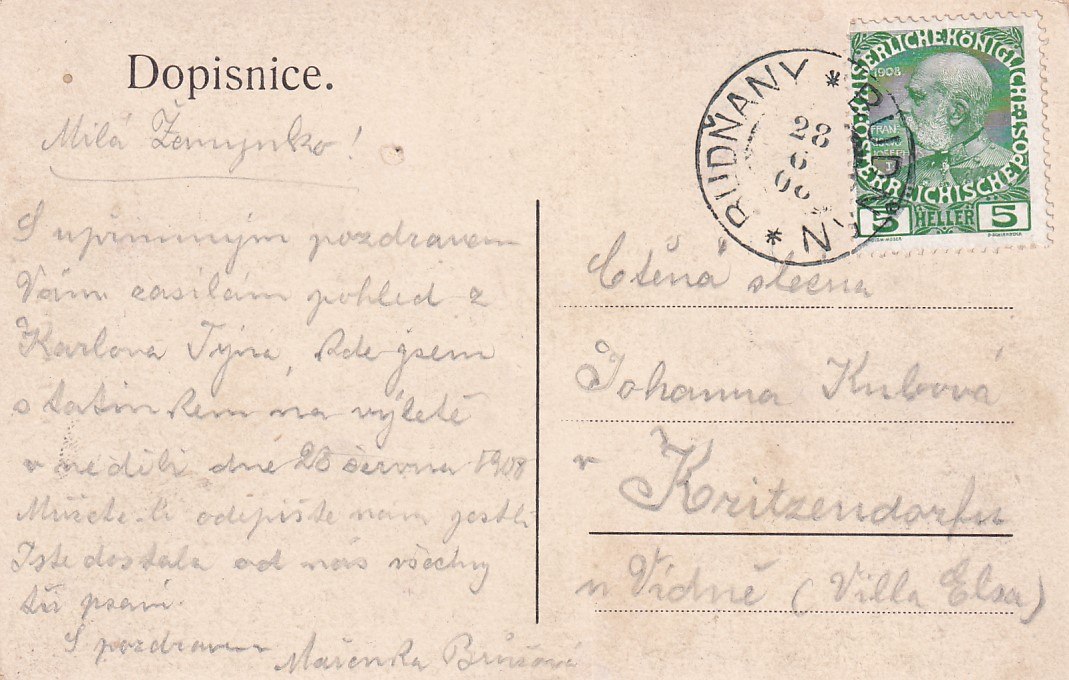 Dopisnice.
Milá
S upřimným pozdravem
Vám zasílám pohled z
Karlova Týna, kde jsem
s tatínkem na výletě
v neděli dné 28 června 1908
Můžete-li odepište nám jestli
Jste dostala od nás všechny
psaní.
S pozdravem
Mařenka
RUDŇANY * RUDŇAN *
28
6
08
KAISERLICHE KÖNIGLICHE ÖSTERREICHISCHE POST
1908
FRANZ
JOSEF I
5 HELLER 5
Ctěná slečna
Johanna Kubová
v Kritzendorfu
u Vídně (Villa Elsa)